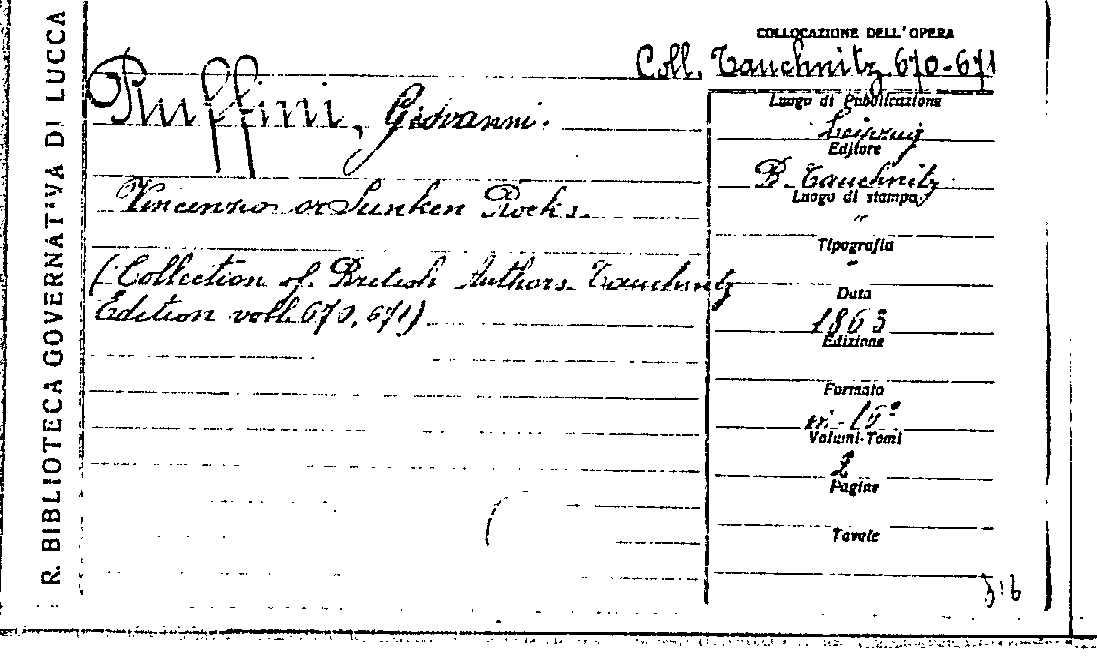 R. BIBLIOTECA GOVERNATIVA DI LUCCA
COLLOCAZIONE DELL'OPERA
Coll. Tauchnitz 670-671
Ruffini, Giovanni.
Vincenzo or Sunken Rocks.
(Collection of British Authors Tauchnitz
Edition voll. 670, 671)
Luogo di Pubblicazione
Leipzig
Editore
B. Tauchnitz
Luogo di stampa
"
Tipografia
"
Data
1863
Edizione
Formato
in-16°
Volumi-Tomi
2
Pagine
Tavole